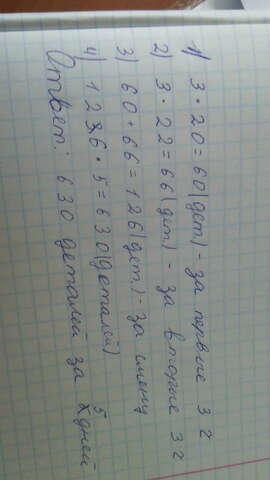 1) 3 · 20 = 60 (дет) - за первые 3 г
2) 3 · 22 = 66 (дет) - за вторые 3 г
3) 60 + 66 = 126 (дет.) - за смену
4) 126 · 5 = 630 (деталей)
Ответ: 630 деталей за 5 дней